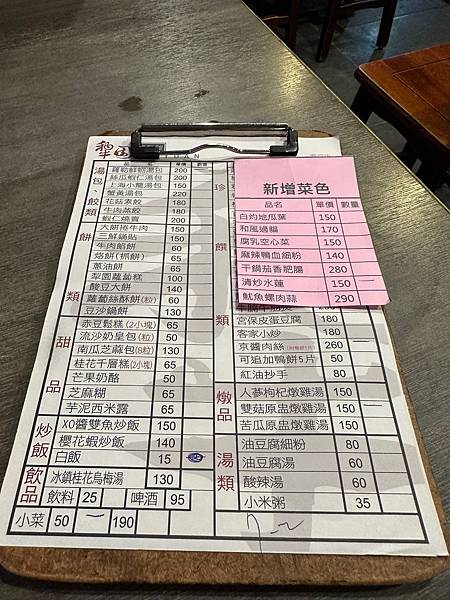 犁田
YUAN
品名 單價 數量
湯包、餃類
羅勒鮮蚵湯包 200
絲瓜蝦仁湯包 200
上海小籠湯包 150
蟹黃湯包 220
花菇素餃 180
牛肉蒸餃 180
蝦仁燒賣 200
餅類
大餅捲牛肉 150
三鮮鍋貼 150
牛肉餡餅 60
烙餅(抓餅) 65
蔥油餅 65
犁園蘿蔔糕 100
酸豆大餅 140
蘿蔔絲酥餅(粒) 60
豆沙鍋餅 130
甜品
赤豆鬆糕(2小塊) 65
流沙奶皇包(粒) 50
南瓜芝麻包(8粒) 130
桂花千層糕(2小塊) 65
芒果奶酪 50
芝麻糊 65
芋泥西米露 65
炒飯
XO醬雙魚炒飯 150
櫻花蝦炒飯 140
白飯 15
飲品
冰鎮桂花烏梅湯 130
飲料 25 啤酒 95
小菜 50 一 190
珍饌類
新增菜色
品名 單價 數量
白灼地瓜葉 150
和風過貓 170
腐乳空心菜 150
麻辣鴨血細粉 140
干鍋茄香肥腸 280
清炒水蓮 150 一
魷魚螺肉蒜 290
宮保皮蛋豆腐 180
客家小炒 180
京醬肉絲 260 一
可追加鴨餅5片 50
紅油抄手 80
燉品
人蔘枸杞燉雞湯 150
雙菇原盅燉雞湯 150 一
苦瓜原盅燉雞湯 150
湯類
油豆腐細粉 80
油豆腐湯 60
酸辣湯 60
小米粥 35